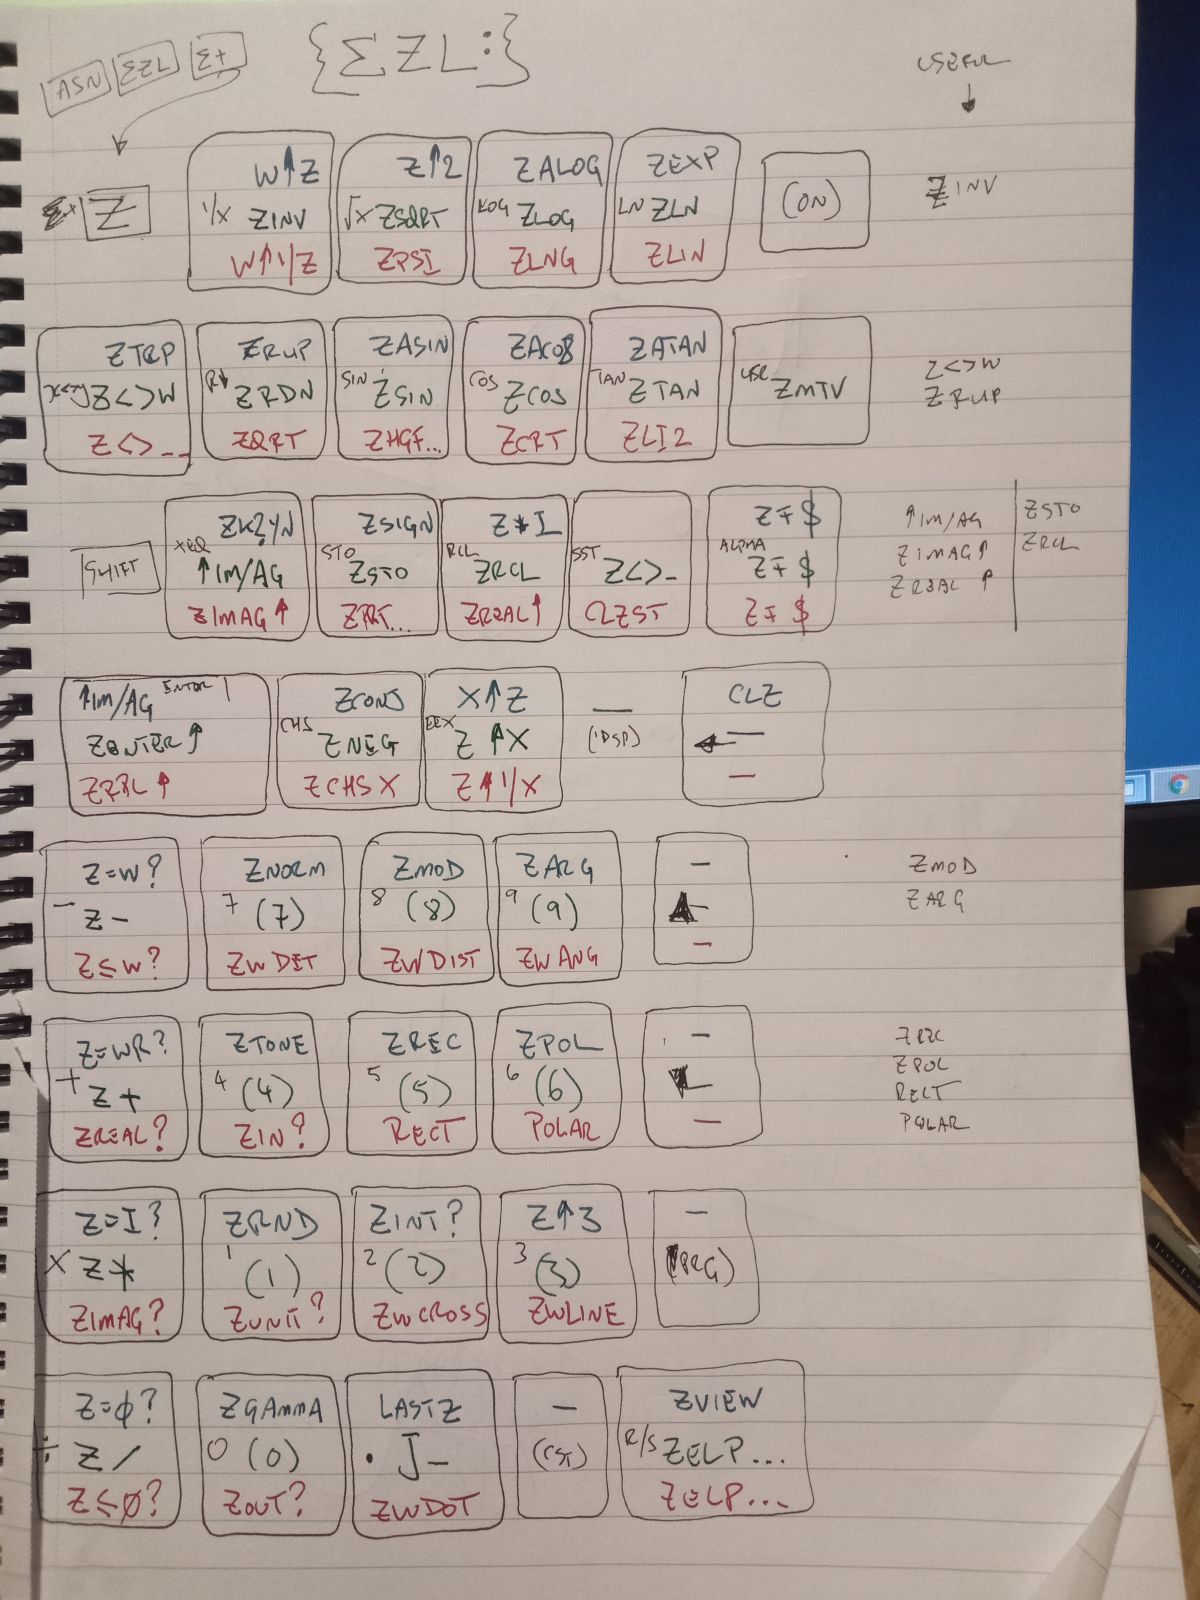 ASN ΣZL Σ+ {ΣZL:} USEFUL
W↑Z Z↑2 ZALOG ZEXP
Z 1/X ZINV √X ZSQRT LOG ZLOG LN ZLN (ON) ZINV
W↑1/Z ZPSI ZLNG ZLIN
ZTRP ZRUP ZASIN ZACOS ZATAN
X<>Y Z<>W R↓ ZRDN SIN ZSIN COS ZCOS TAN ZTAN USR ZMTV Z<>W
ZRUP
Z<>__ ZQRT ZHGF... ZCRT ZLI2
ZK?YN ZSIGN Z*I Z∓$ ↑IM/AG ZSTO
SHIFT XEQ ↑IM/AG STO ZSTO RCL ZRCL SST Z<>_ ALPHA Z∓$ ZIMAG↑ ZRCL
ZIMAG↑ ZPRT... ZREAL↑ CLZST Z∓$ ZREAL↑
↑IM/AG ENTER ZCONJ X↑Z CLZ
ZENTER↑ CHS ZNEG EEX Z↑X — (DSP) ← —
ZRPL↑ ZCHSX Z↑1/X —
Z=W? ZNORM ZMOD ZARG — ZMOD
− Z− 7 (7) 8 (8) 9 (9) — ZARG
Z≤W? ZWDET ZWDIST ZWANG —
Z=WR? ZTONE ZREC ZPOL — ZREC
+ Z+ 4 (4) 5 (5) 6 (6) — ZPOL
RECT
ZREAL? ZIN? RECT POLAR — POLAR
Z=I? ZRND ZINT? Z↑3 —
X Z* 1 (1) 2 (2) 3 (3) (PRG)
ZIMAG? ZUNIT? ZWCROSS ZWLINE
Z=Ø? ZGAMMA LASTZ — ZVIEW
÷ Z/ 0 (0) . J_ (CST) R/S ZELP...
Z≤Ø? ZOUT? ZWDOT ZELP...